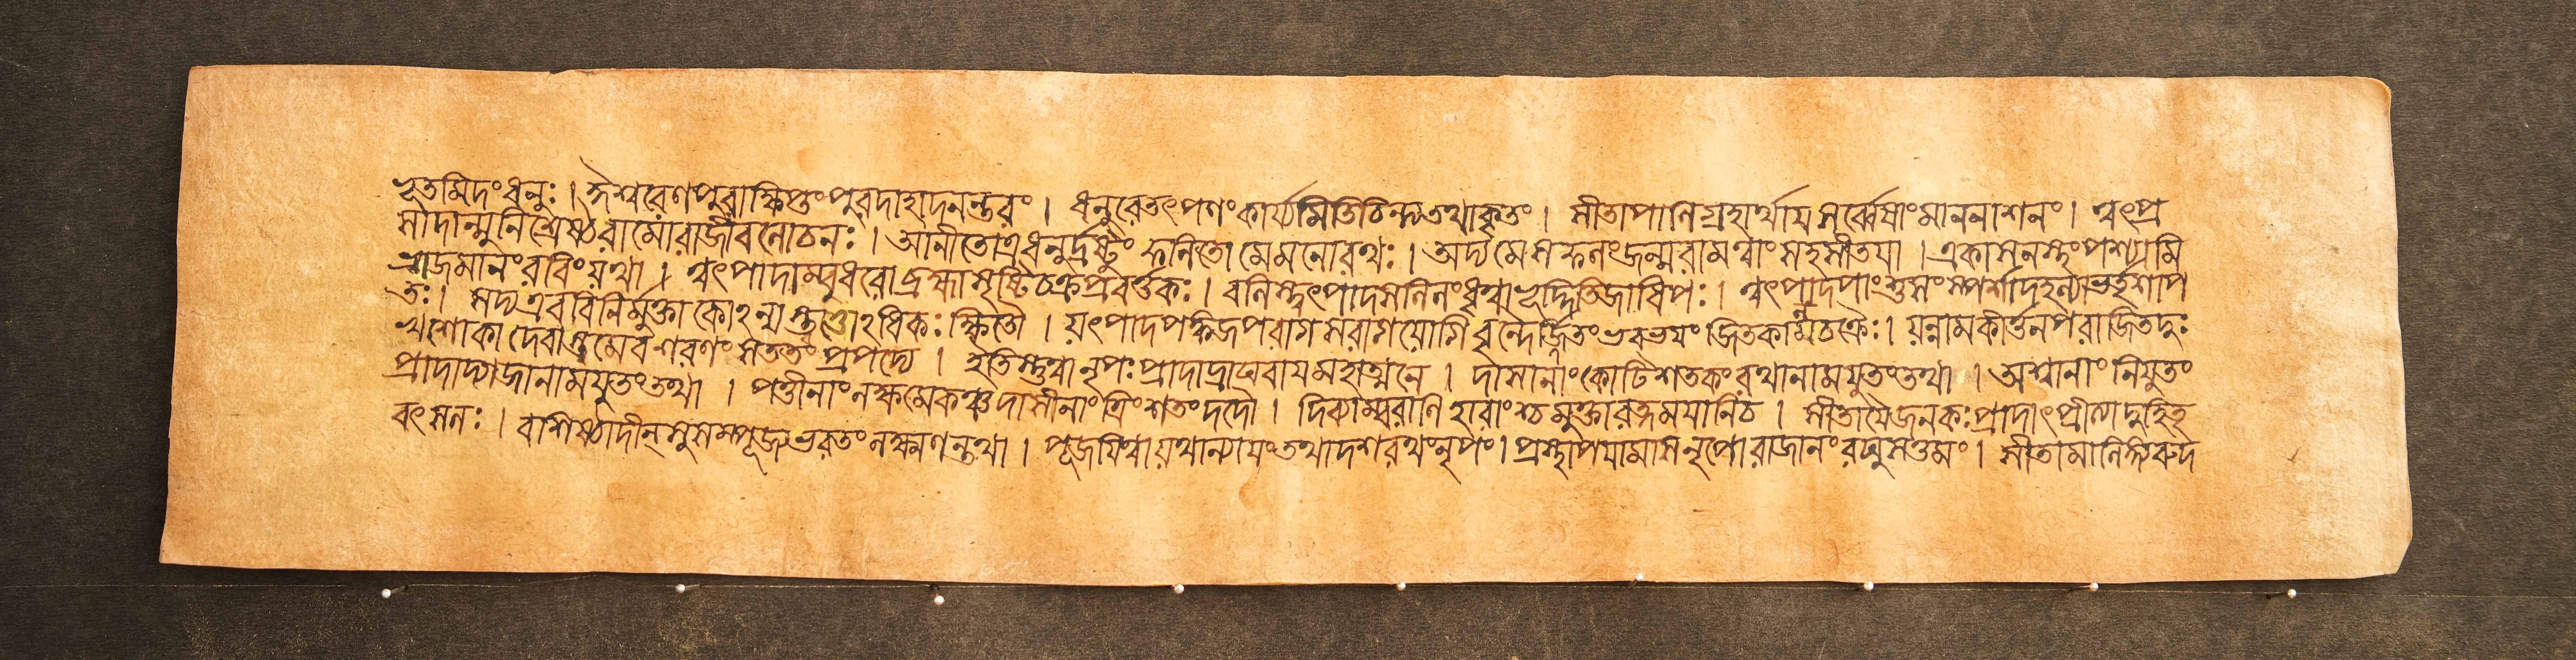 হৃতমিদংধনুঃ । ঈশ্বরেণপুরাক্ষিপ্তংপুরদাহাদনন্তরং । ধনুরেতৎপণংকার্য্যমিতিচিন্ত্যতথাকৃতং । সীতাপাণিগ্রহার্থায়সর্ব্বেষাংমাননাশনং । ত্বৎপ্র
সাদান্মুনিশ্রেষ্ঠরামোরাজীবলোচনঃ । আনীতোত্রধনুর্দ্রষ্টুংফলিতোমেমনোরথঃ । অদ্যমেসফলংজন্মরামত্বাংসহসীতয়া । একাসনস্থংপশ্যামি
ভ্রাজমানংরবিংযথা । ত্বৎপাদাম্বুধরোব্রহ্মাসৃষ্টিচক্রপ্রবর্ত্তকঃ । বলিস্ত্বৎপাদসলিলংধৃত্বাভূদ্দিতিজাধিপঃ । ত্বৎপাদপাংশুসংস্পর্শাদহল্যাভর্তৃশাপ
তঃ । সদ্যএববিনির্মুক্তাকোঽন্যস্ত্বত্তোঽধিকঃক্ষিতৌ । যৎপাদপঙ্কজপরাগসরাগযোগিবৃন্দৈর্জ্জিতংভবভয়ংজিতকালচক্রৈঃ । যন্নামকীর্ত্তনপরাজিতদুঃ
খশোকাদেবাস্তমেবশরণংসততংপ্রপদ্যে । ইতিস্তুত্বানৃপঃপ্রাদাদ্রাঘবায়মহাত্মনে । দীনারাণাংকোটিশতকংরথানামযুতংতথা । অশ্বানাংনিযুতং
প্রাদাদ্গজানামযুতংতথা । পত্তীনাংলক্ষমেকঞ্চদাসীনাংত্রিংশতংদদৌ । দিব্যাম্বরাণিহারাংশ্চমুক্তারত্নময়ানিচ । সীতায়ৈজনকঃপ্রাদাৎপ্রীত্যাদুহিতৃ
বৎসলঃ । বাশিষ্ঠাদীন্সুসম্পূজ্যভরতংলক্ষ্মণন্তথা । পূজয়িত্বাযথান্যায়ংতথাদশরথংনৃপং । প্রস্থাপয়ামাসনৃপোরাজানংরঘুসত্তমং । সীতামালিঙ্গ্যরুদ